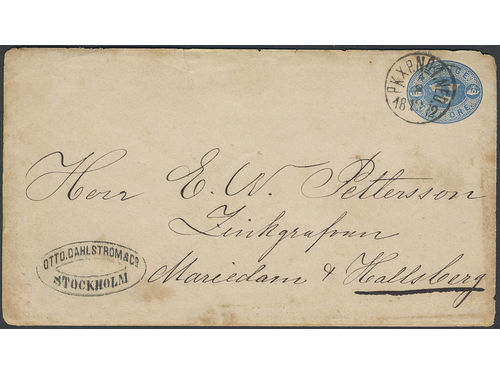 PKXP.Nr
ÖRE
Herr E. W. Pettersson
Zinkgrufvan
Mariedam & Hallsberg
OTTO.DAHLSTRÖM & Co
STOCKHOLM